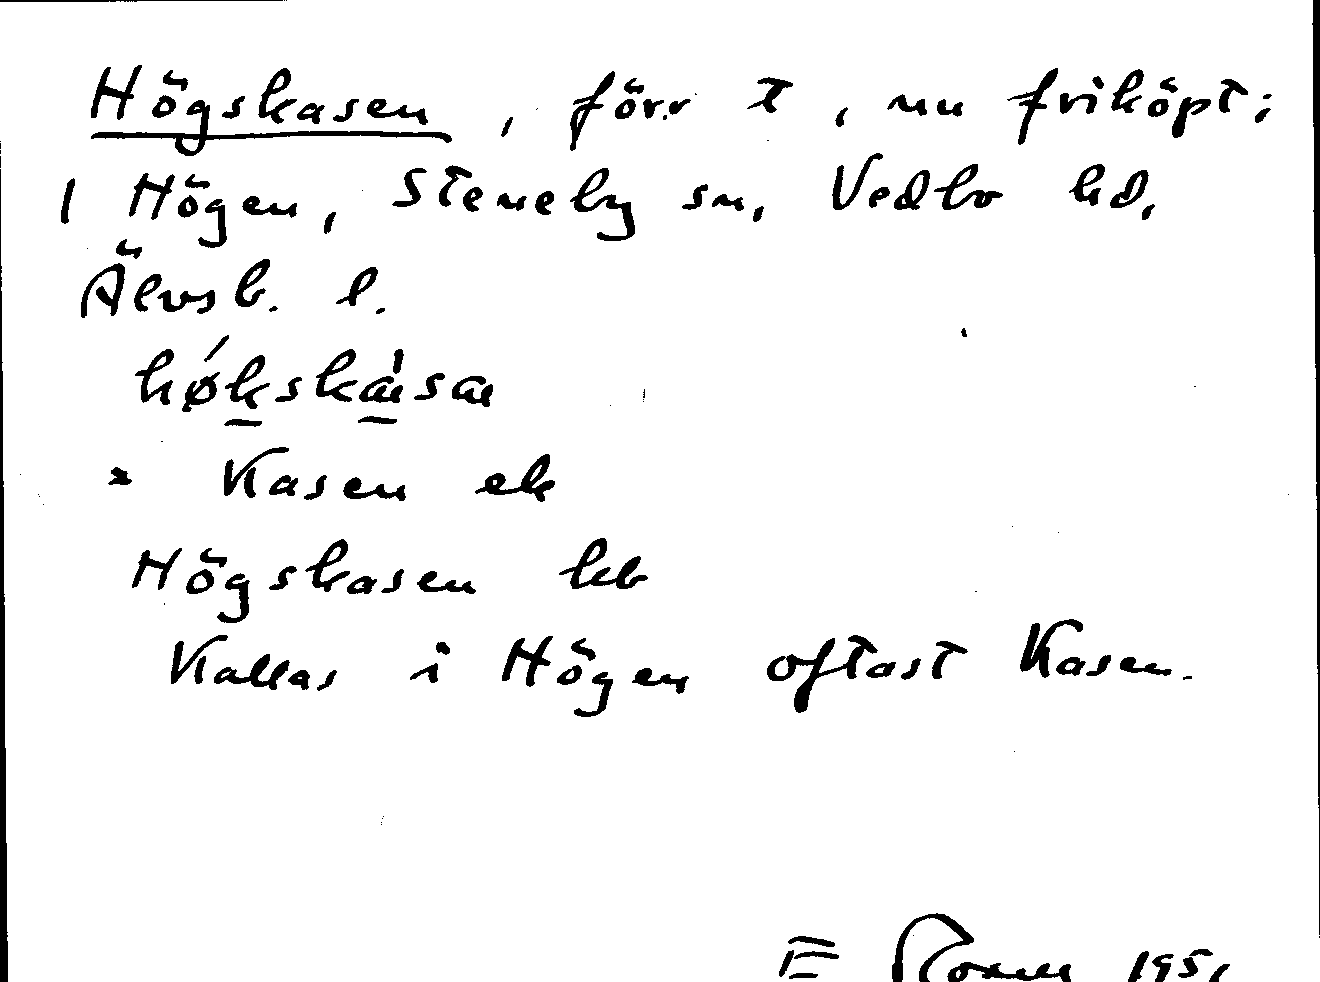 Högskasen, förr t, nu friköpt;
1 Högen, Steneby sn, Vedbo hd,
Älvsb. l.
hǿkskæ̀sæ
Kasen ek
Högskasen kb
Kallas i Högen oftast Kasen.
E 1951